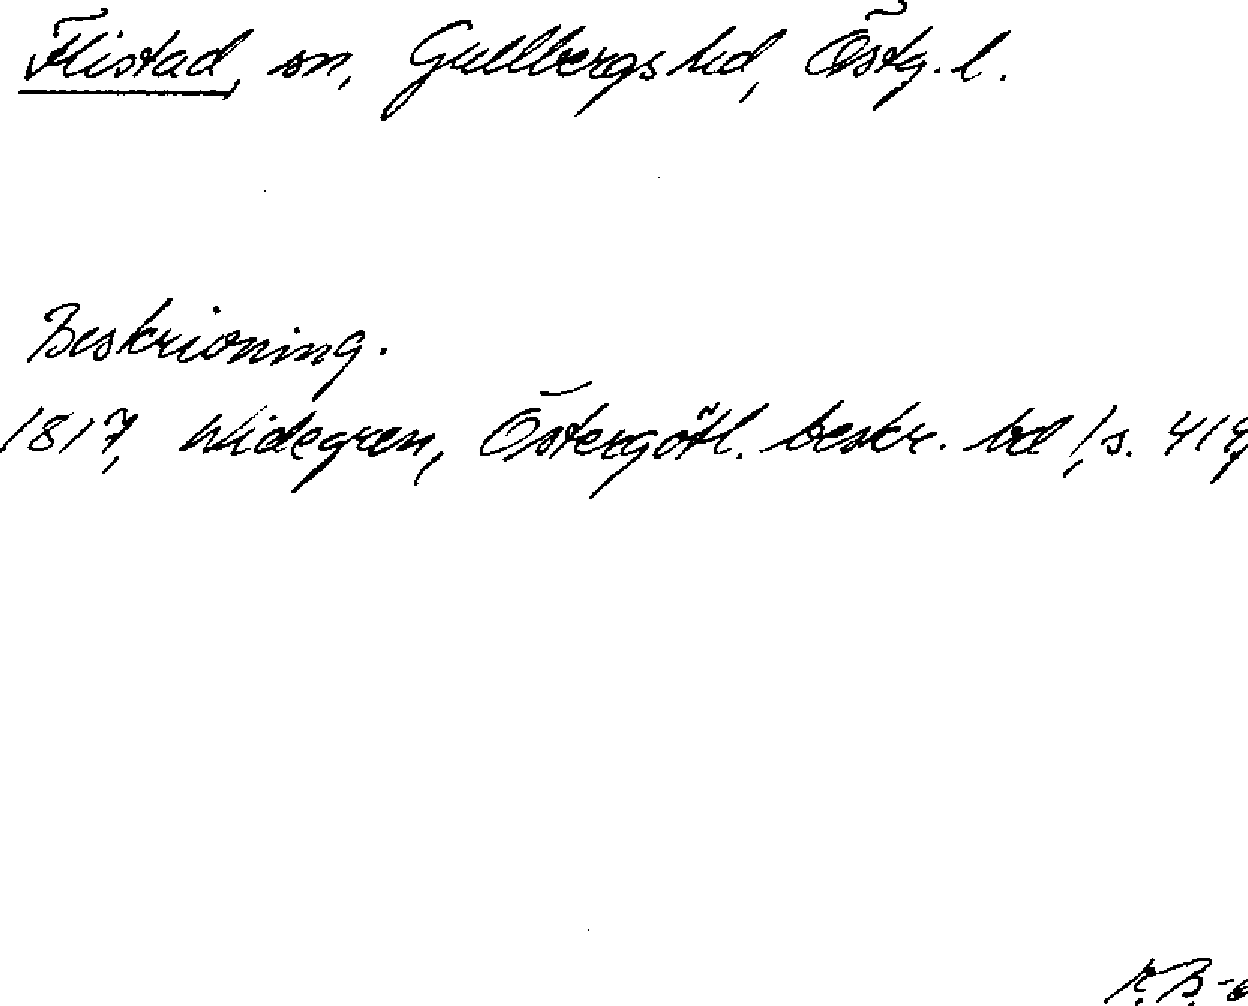 Flistad, sn, Gullbergs hd, Östg. l.
Beskrivning.
1817, Widegren, Östergötl. beskr. bd 1, s. 419